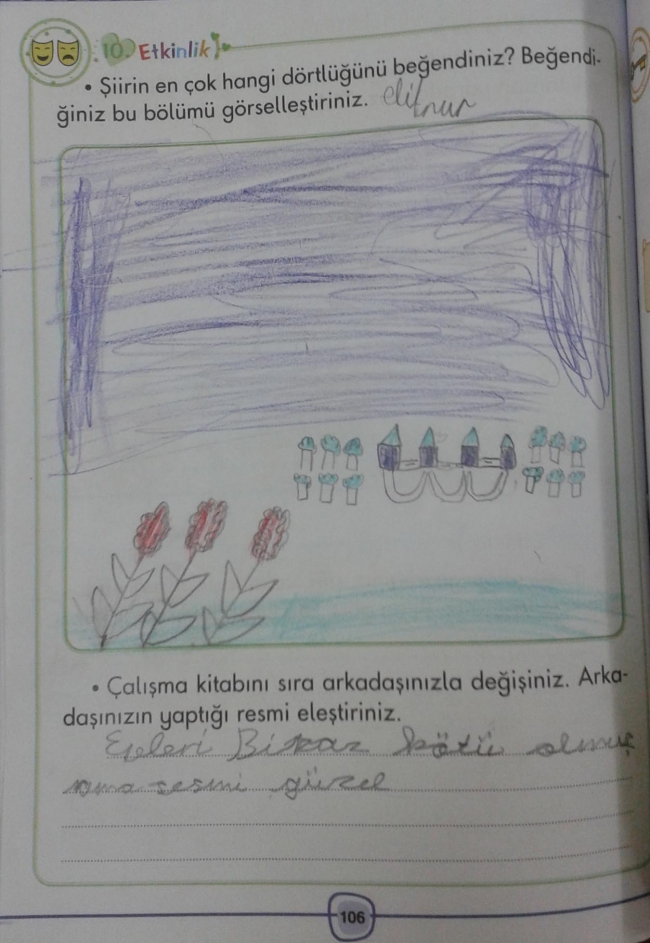 10. Etkinlik
• Şiirin en çok hangi dörtlüğünü beğendiniz? Beğendi-
ğiniz bu bölümü görselleştiriniz. elifnur
• Çalışma kitabını sıra arkadaşınızla değişiniz. Arka-
daşınızın yaptığı resmi eleştiriniz.
Biraz kötü olmuş
ama resmi güzel
106